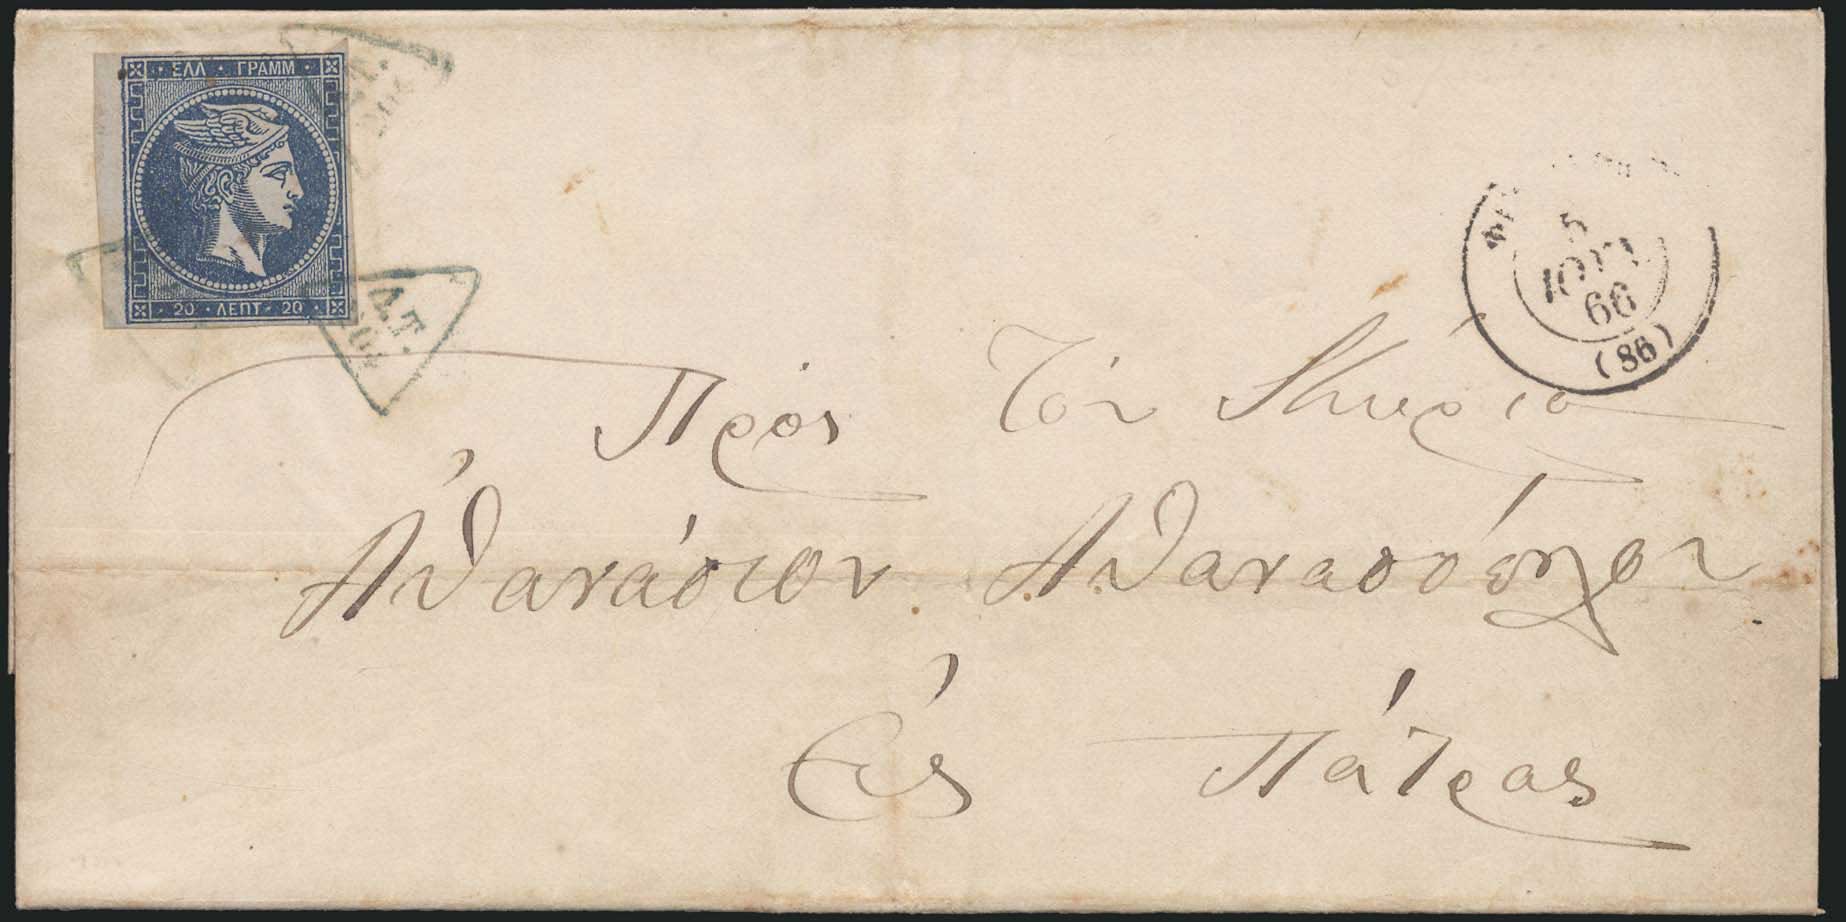 ΕΛΛ · ΓΡΑΜΜ
20 · ΛΕΠΤ · 20
Δ.Τ.
5
ΙΟΥΛ
66
(86)
Πρὸς Τὸν Κύριο
Ἀθανάσιον Ἀθανασόπουλον
Εἰς Πάτρας